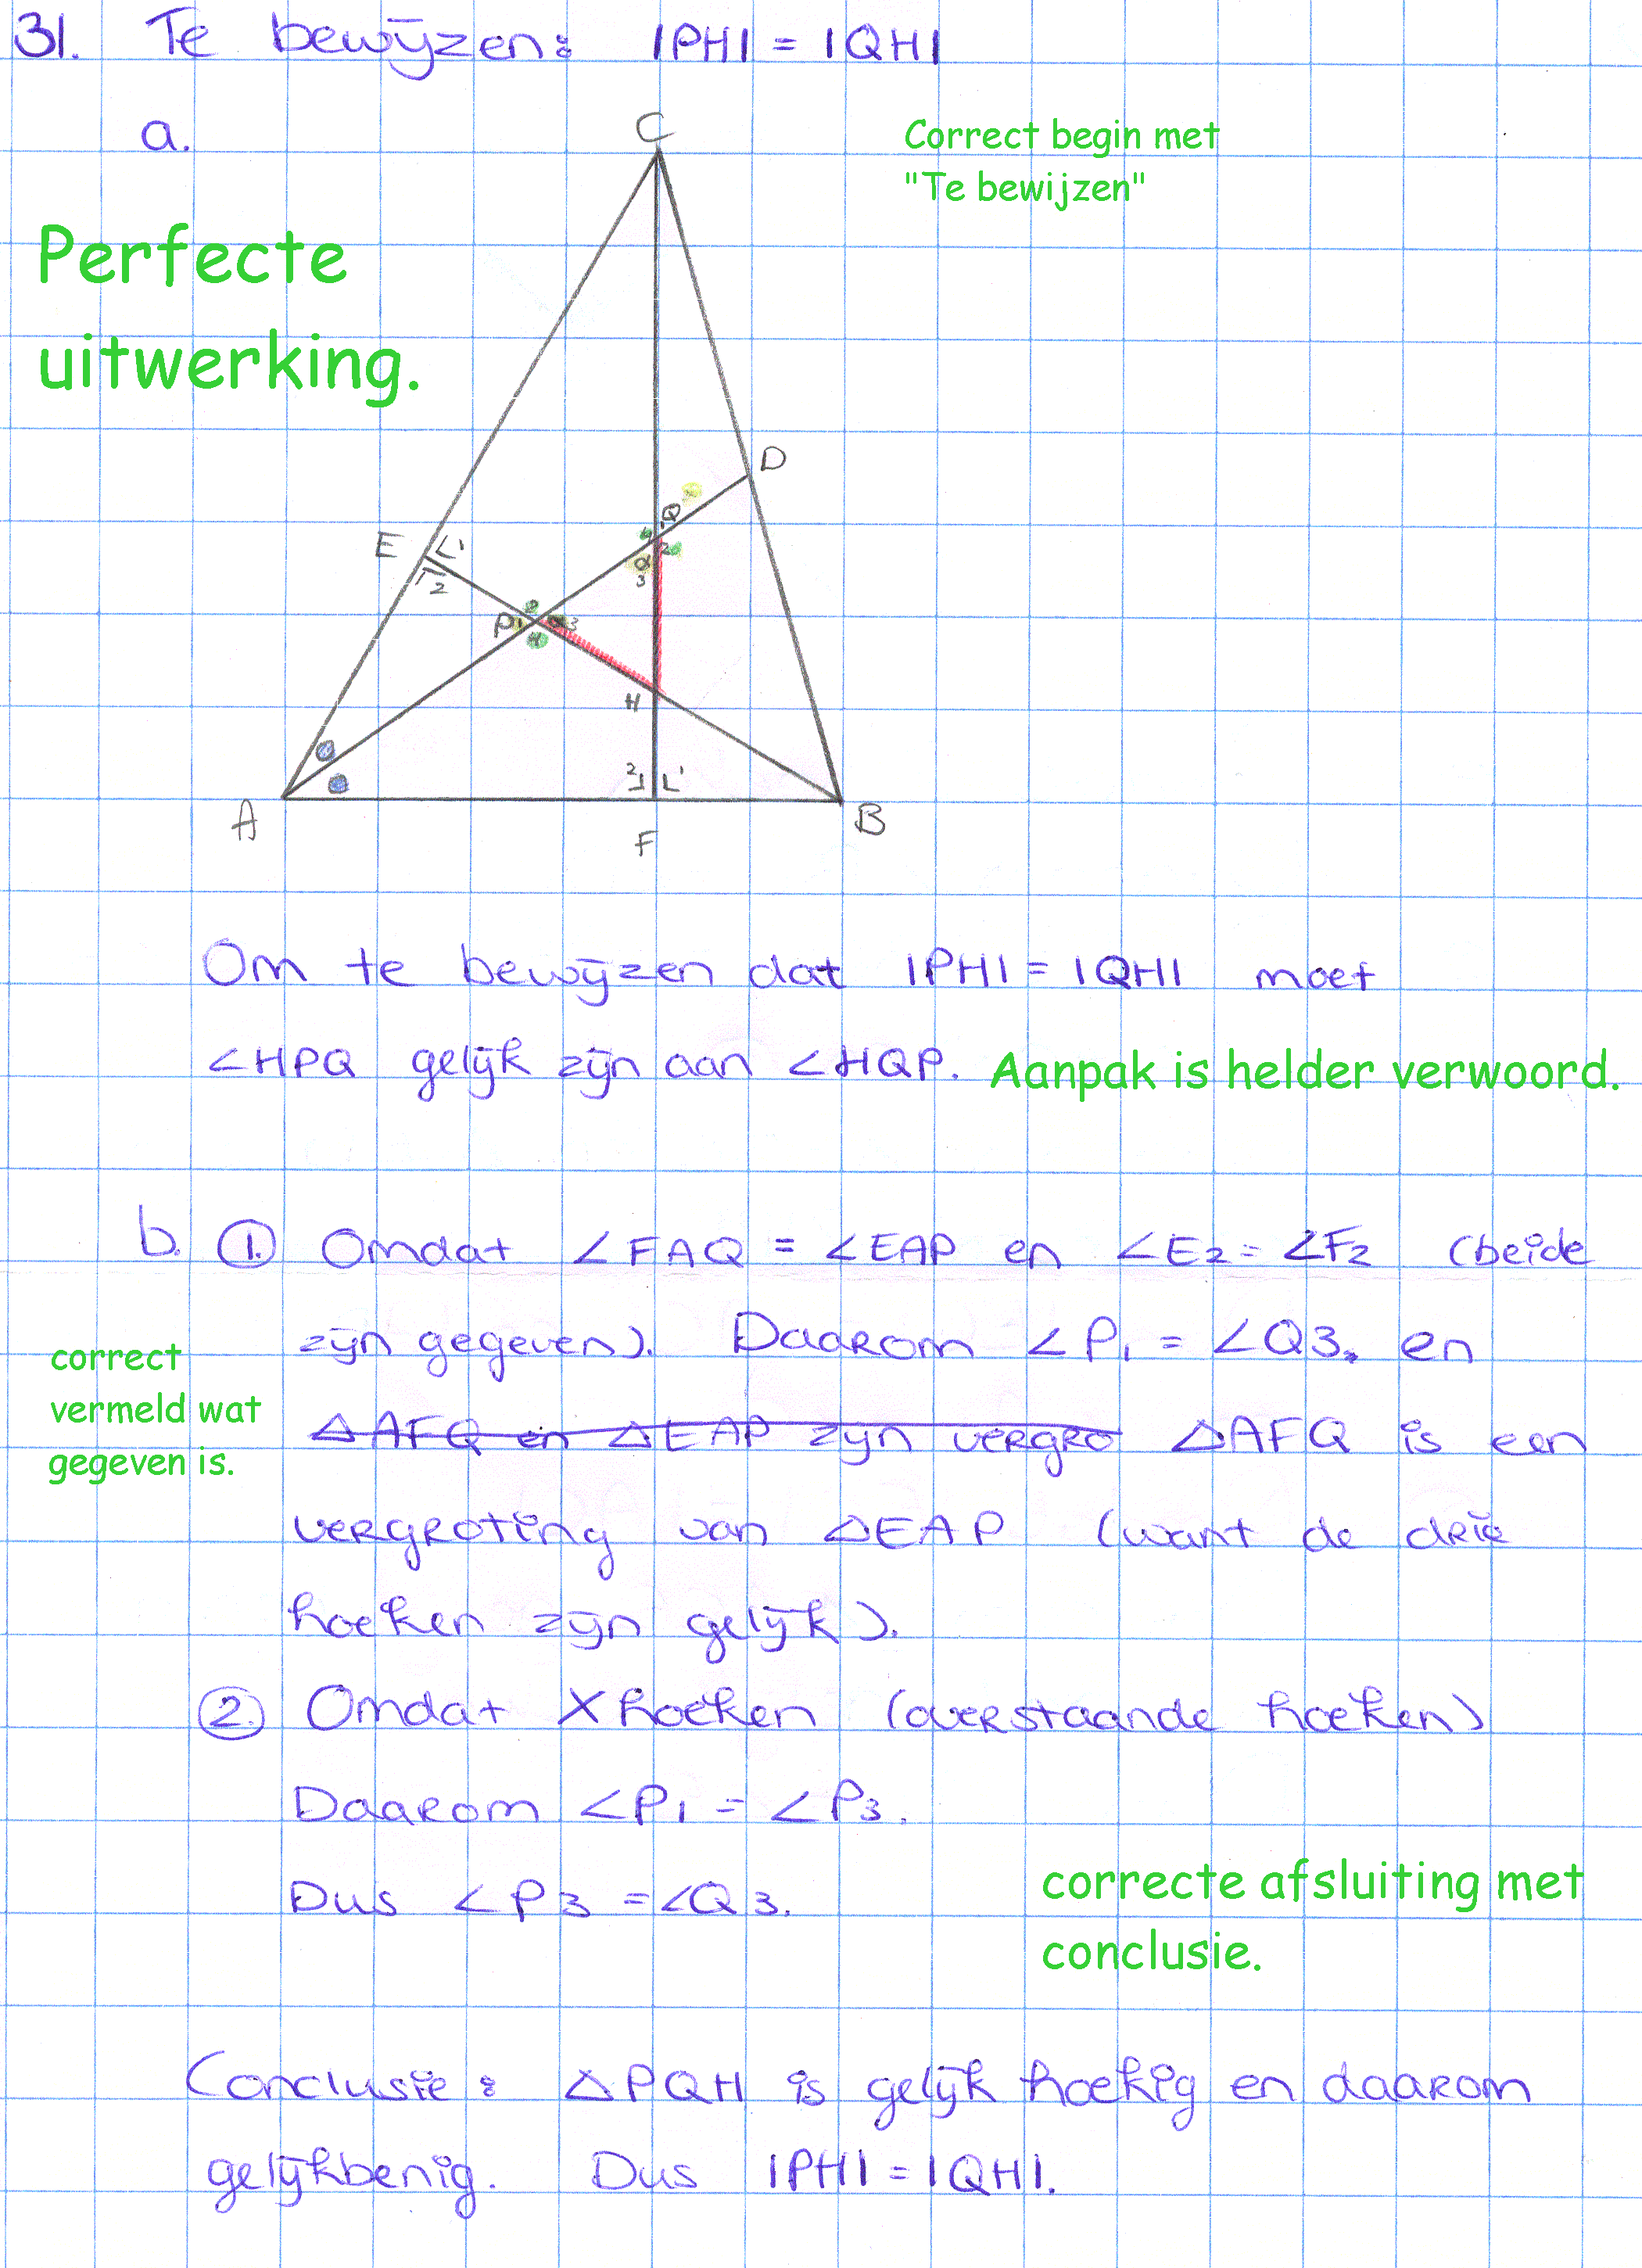 31. Te bewijzen: |PH| = |QH|
a.
Correct begin met
"Te bewijzen"
Perfecte
uitwerking.
C
D
E
1
2
Q
1
4
2
Q
3
P
1
2
3
4
H
2
1
A
F
B
Om te bewijzen dat |PH| = |QH| moet
∠HPQ gelijk zijn aan ∠HQP.
Aanpak is helder verwoord.
b. 1. Omdat ∠FAQ = ∠EAP en ∠E2 = ∠F2 (beide
zijn gegeven). Daarom ∠P1 = ∠Q3, en
correct
vermeld wat
gegeven is.
△AFQ en △EAP zijn vergro △AFQ is een
vergroting van △EAP (want de drie
hoeken zijn gelijk).
2. Omdat X hoeken (overstaande hoeken)
Daarom ∠P1 = ∠P3.
Dus ∠P3 = ∠Q3.
correcte afsluiting met
conclusie.
Conclusie: △PQH is gelijk hoekig en daarom
gelijkbenig. Dus |PH| = |QH|.